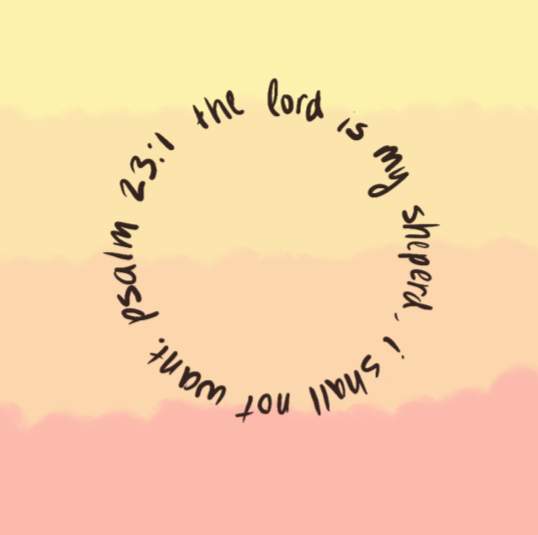 the lord is my sheperd, i shall not want. psalm 23:1